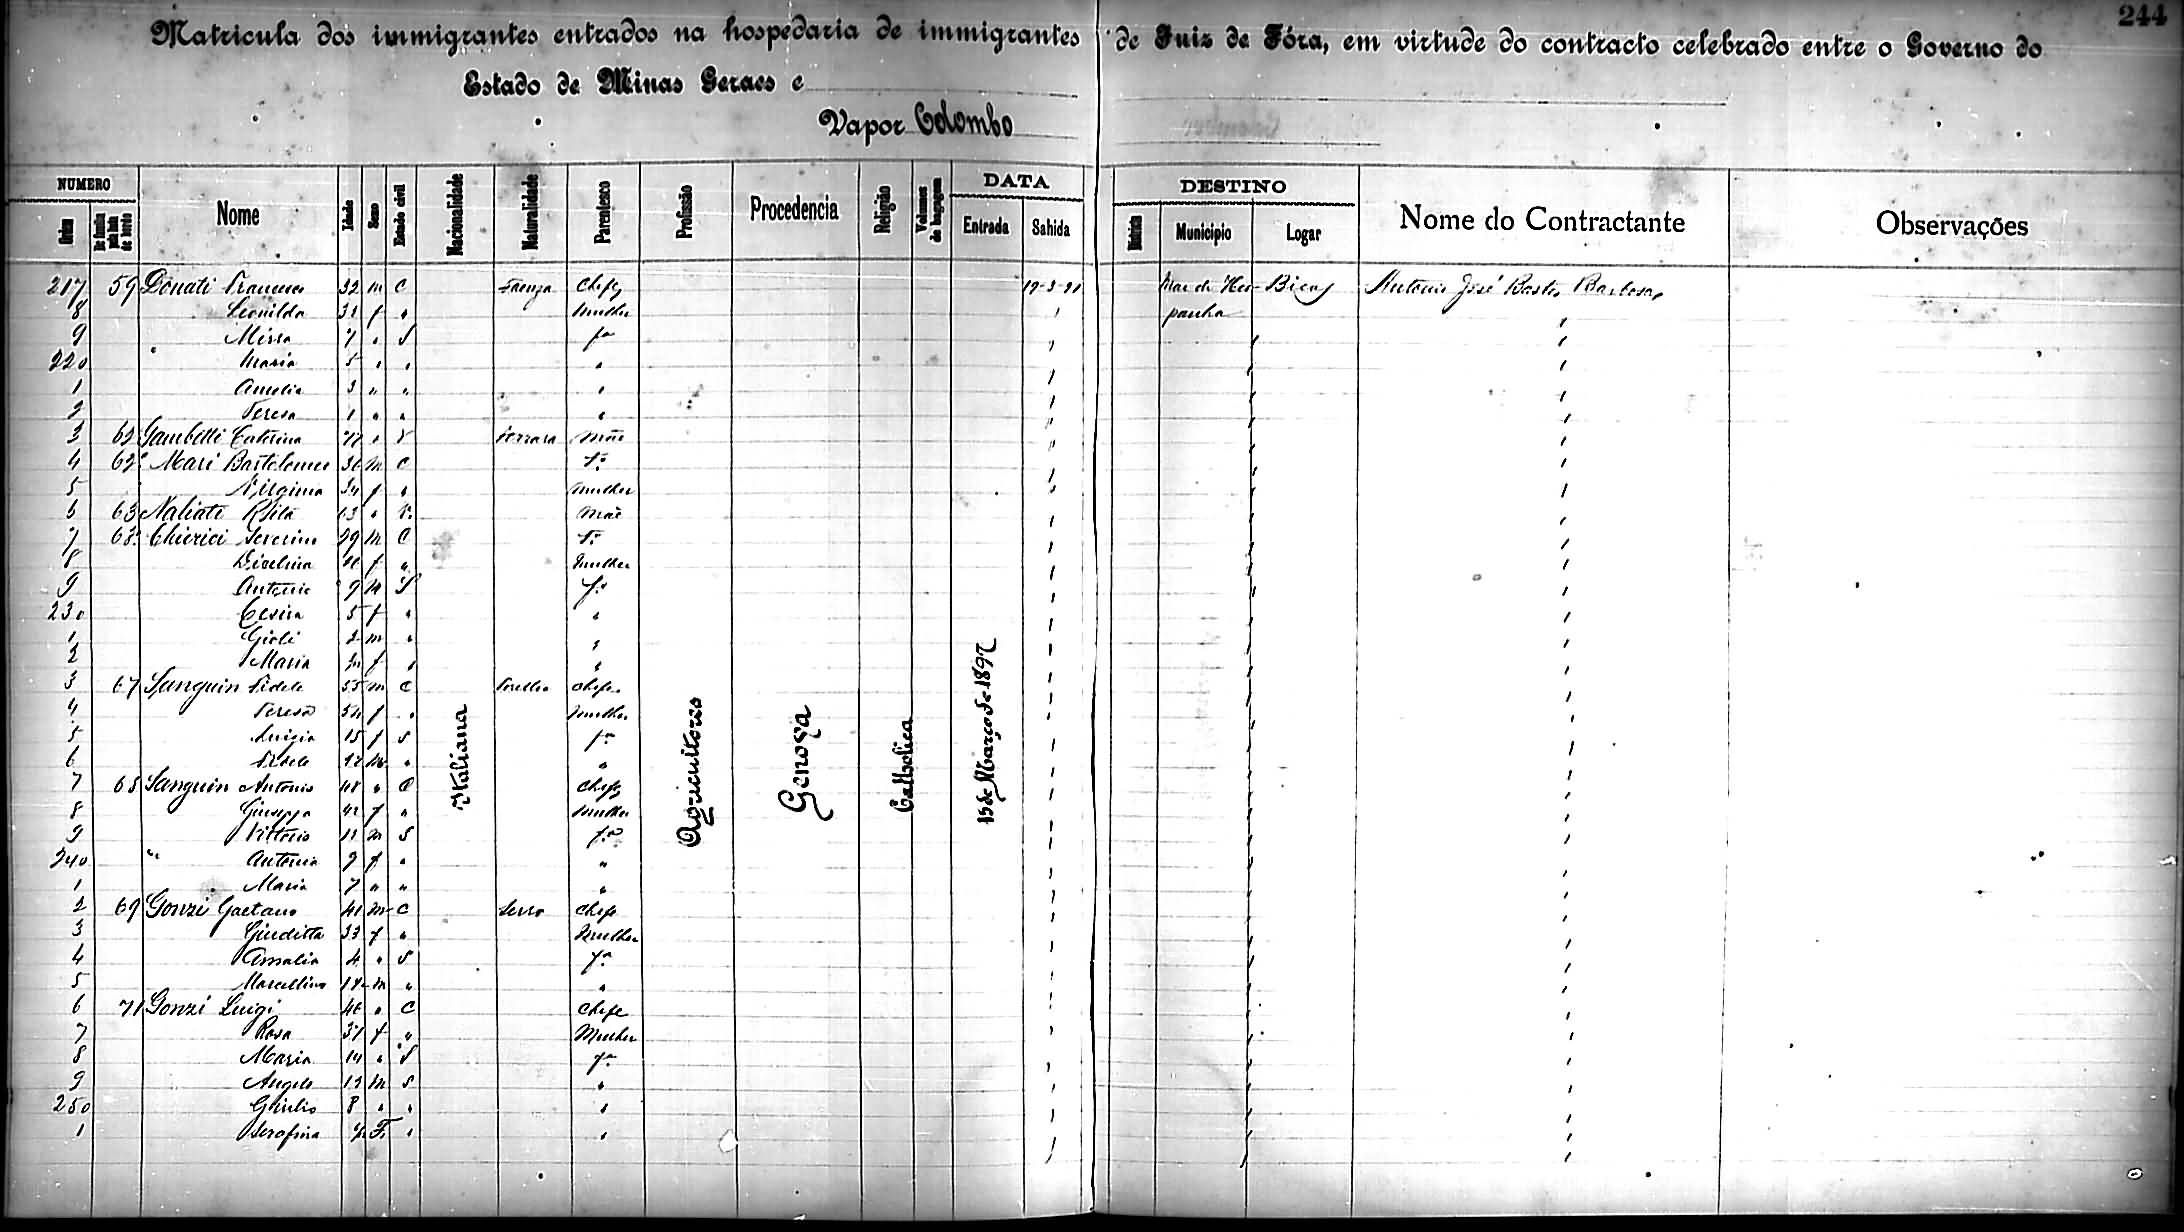 244
Matricula dos immigrantes entrados na hospedaria de immigrantes de Juiz de Fóra, em virtude do contracto celebrado entre o Governo do
Estado de Minas Geraes e
Vapor Colombo
NUMERO Nome Idade Sexo Estado civil Nacionalidade Naturalidade Parentesco Profissão Procedencia Religião Volumes de bagagem DATA DESTINO Nome do Contractante Observações
Ordem Entrada Sahida Municipio Logar
217 59 Donati Francesco 32 m C Faenza Chefe 19-3-97 Mar de Hes- Bicas Antonio José Bastos Barbosa
8 Leonilda 32 f " Mulher panha
9 7 " S fa
220 Maria 5 " " "
1 Amelia 3 " " "
2 Teresa 1 " " "
3 Gambetti Caterina " V Ferrara Mãe
4 62 Mari Bartolomeo 36 m C
5 Virginia 34 f " Mulher
6 63 63 " V. Mãe
7 Chierici Severino 29 m C
8 f " Mulher
9 Antonio 9 m S fo
230 Cesira 5 f " "
1 2 m " "
2 Maria f " "
3 67 Sanguin Fidele 55 m C Chefe
4 Teresa 54 f " Mulher
5 Luigia 15 f S fa
6 Fidele 12 m " "
7 68 Sanguin Antonio 48 " C Chefe
8 Giuseppa 42 f " Mulher
9 Vittorio 12 m S fo
240 " Antonia 9 f " "
1 Maria 7 " " "
2 69 Gonzi Gaetano 41 m C Chefe
3 Giuditta 33 f " Mulher
4 Amalia 4 " S fa
5 Marcellino 12 m " "
6 71 Gonzi Luigi 46 " C Chefe
7 Rosa 37 f " Mulher
8 Maria 14 " S fa
9 Angelo 12 m S "
250 Giulio 8 " " "
1 Serafina F. " "
Italiana
Agricultores
Genova
Catholica
15 de Março de 1897